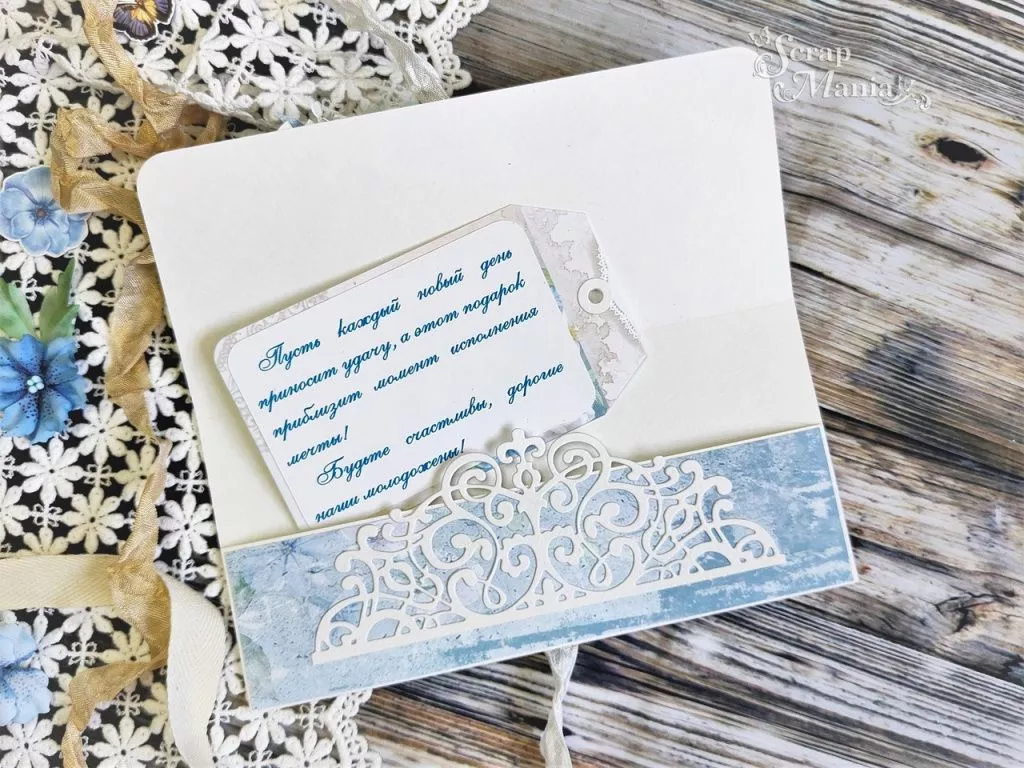 Scrap
Mania
Пусть каждый новый день
приносит удачу, а этот подарок
приблизит момент исполнения
мечты!
Будьте счастливы, дорогие
наши молодожены!